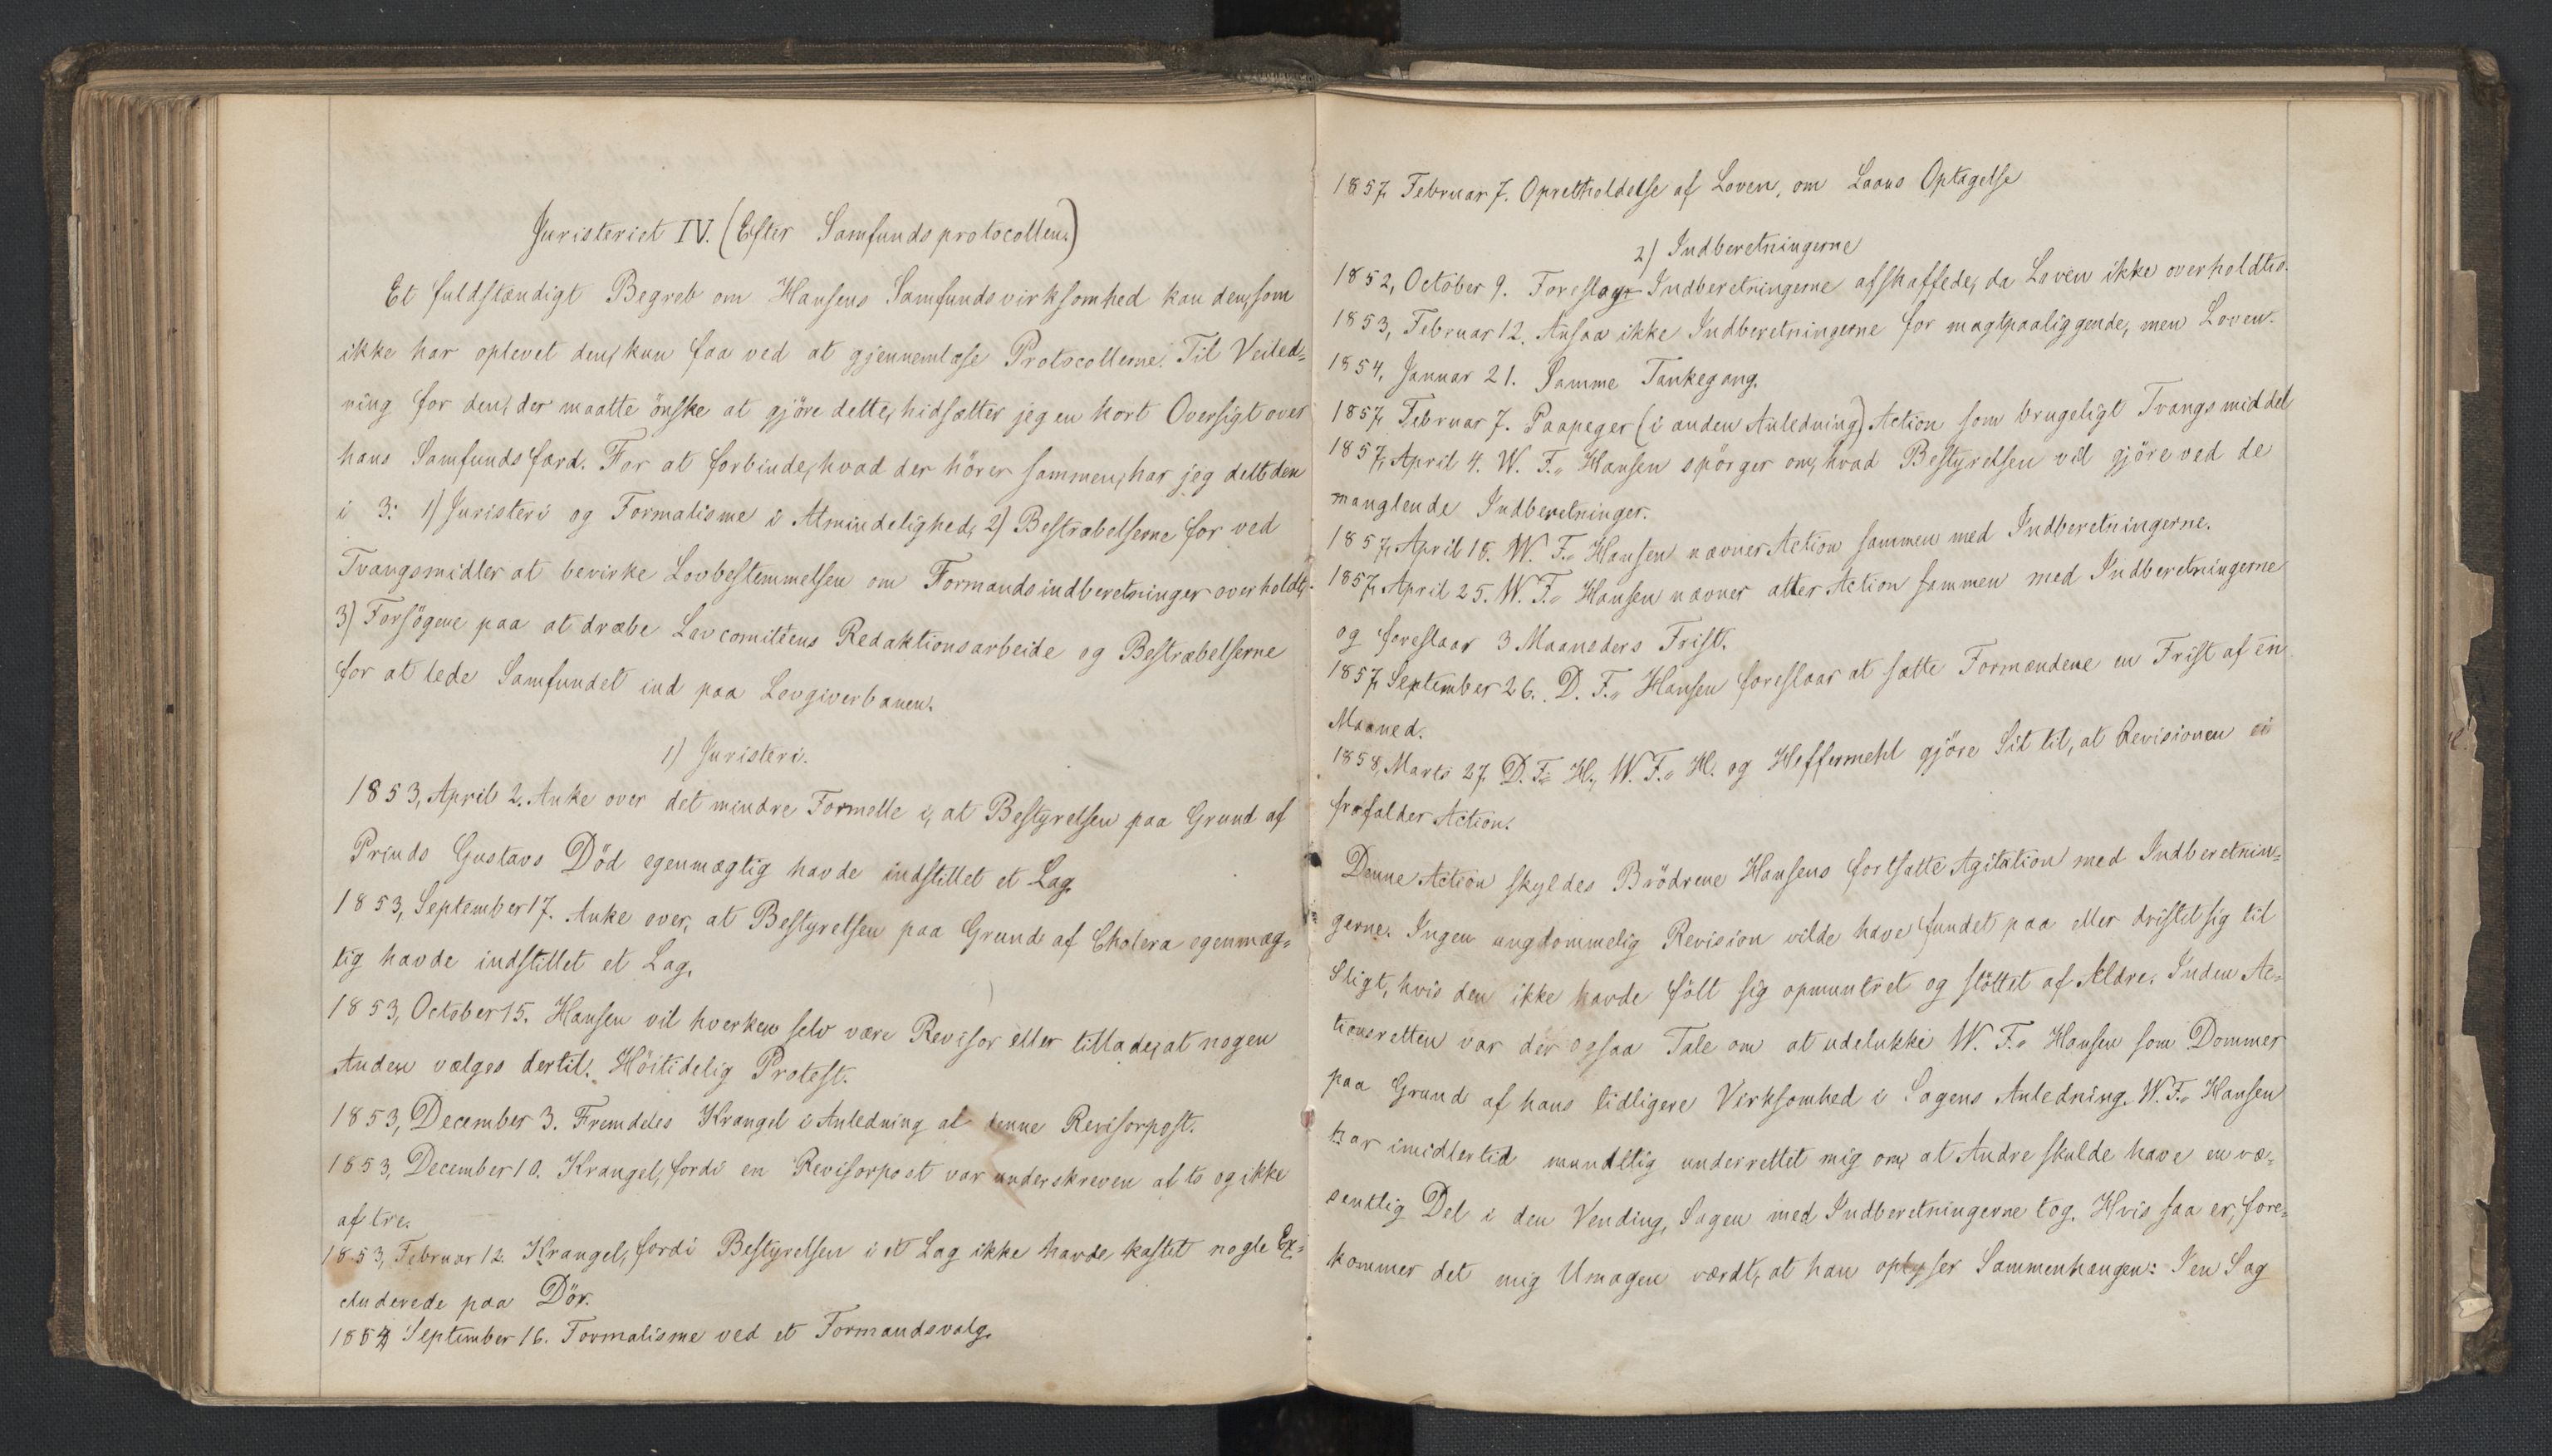 Juristeriet IV. (Efter Samfundsprotocollen.)
Et fuldstændigt Begreb om Hansens Samfundsvirksomhed kan den, som
ikke har oplevet den, kun faa ved at gjennemlæse Protocollerne. Til Veiled=
ning for den, der maatte önske at gjöre dette, hidsætter jeg en kort Oversigt over
hans Samfundsfærd. For at forbinde, hvad der hörer sammen, har jeg delt den
i 3: 1) Juristeri og Formalisme i Almindelighed, 2) Bestræbelserne for ved
Tvangsmidler at bevirke Lovbestemmelsen om Formandsindberetninger overholdt,
3) Forsögene paa at dræbe Lovcomitéens Redaktionsarbeide og Bestræbelserne
for at lede Samfundet ind paa Lovgiverbanen.
1) Juristeri.
1853, April 2. Anke over det mindre Formelle i, at Bestyrelsen paa Grund af
Prinds Gustavs Död egenmægtig havde indstillet et Lag.
1853, September 17. Anke over, at Bestyrelsen paa Grund af Cholera egenmæg=
tig havde indstillet et Lag.
1853, October 15. Hansen vil hverken selv være Revisor eller tillade, at nogen
Anden vælges dertil. Höitidelig Protest.
1853, December 3. Fremdeles Krangel i Anledning af denne Revisorpost.
1853, December 10. Krangel, fordi en Revisorpost var underskreven af to og ikke
af tre.
1853, Februar 12. Krangel, fordi Bestyrelsen i et Lag ikke havde kastet nogle Ex=
cluderede paa Dör.
1854 September 16. Formalisme ved et Formandsvalg.
1857, Februar 7. Opretholdelse af Loven, om Laans Optagelse
2) Indberetningerne
1852, October 9. Foreslog Indberetningerne afskaffede, da Loven ikke overholdtes.
1853, Februar 12. Ansaa ikke Indberetningerne for magtpaaliggende, men Loven.
1854, Januar 21. Samme Tankegang.
1857, Februar 7. Paapeger (i anden Anledning) Action som brugeligt Tvangsmiddel
1857, April 4. W. F. Hansen spörger om, hvad Bestyrelsen vil gjöre ved de
manglende Indberetninger.
1857, April 18. W. F. Hansen nævner Action sammen med Indberetningerne.
1857, April 25. W. F. Hansen nævner atter Action sammen med Indberetningerne
og foreslaar 3 Maaneders Frist.
1857, September 26. D. F. Hansen foreslaar at sætte Formændene en Frist af én
Maaned.
1858, Marts 27. D. F. H., W. F. H. og Hoffermehl gjöre Sit til, at Revisionen ei
frafalder Action.
Denne Action skyldes Brödrene Hansens fortsatte Agitation med Indberetnin=
gerne. Ingen ungdommelig Revision vilde have fundet paa eller dristet sig til
Sligt, hvis den ikke havde fölt sig opmuntret og stöttet af Ældre. Inden Ac=
tionsretten var der ogsaa Tale om at udelukke W. F. Hansen som Dommer
paa Grund af hans tidligere Virksomhed i Sagens Anledning. W. F. Hansen
har imidlertid mundtlig underrettet mig om, at Andre skulde have en væ=
sentlig Del i den Vending, Sagen med Indberetningerne tog. Hvis saa er, fore=
kommer det mig Umagen værdt, at han oplyser Sammenhængen: I en Sag